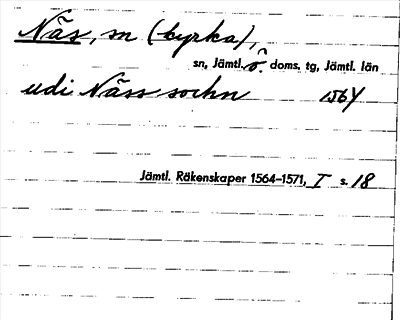 Näs, sn (kyrka),
sn, Jämtl. ö. doms. tg, Jämtl. län
udi Näss sochn 1564
Jämtl. Räkenskaper 1564-1571, I s. 18